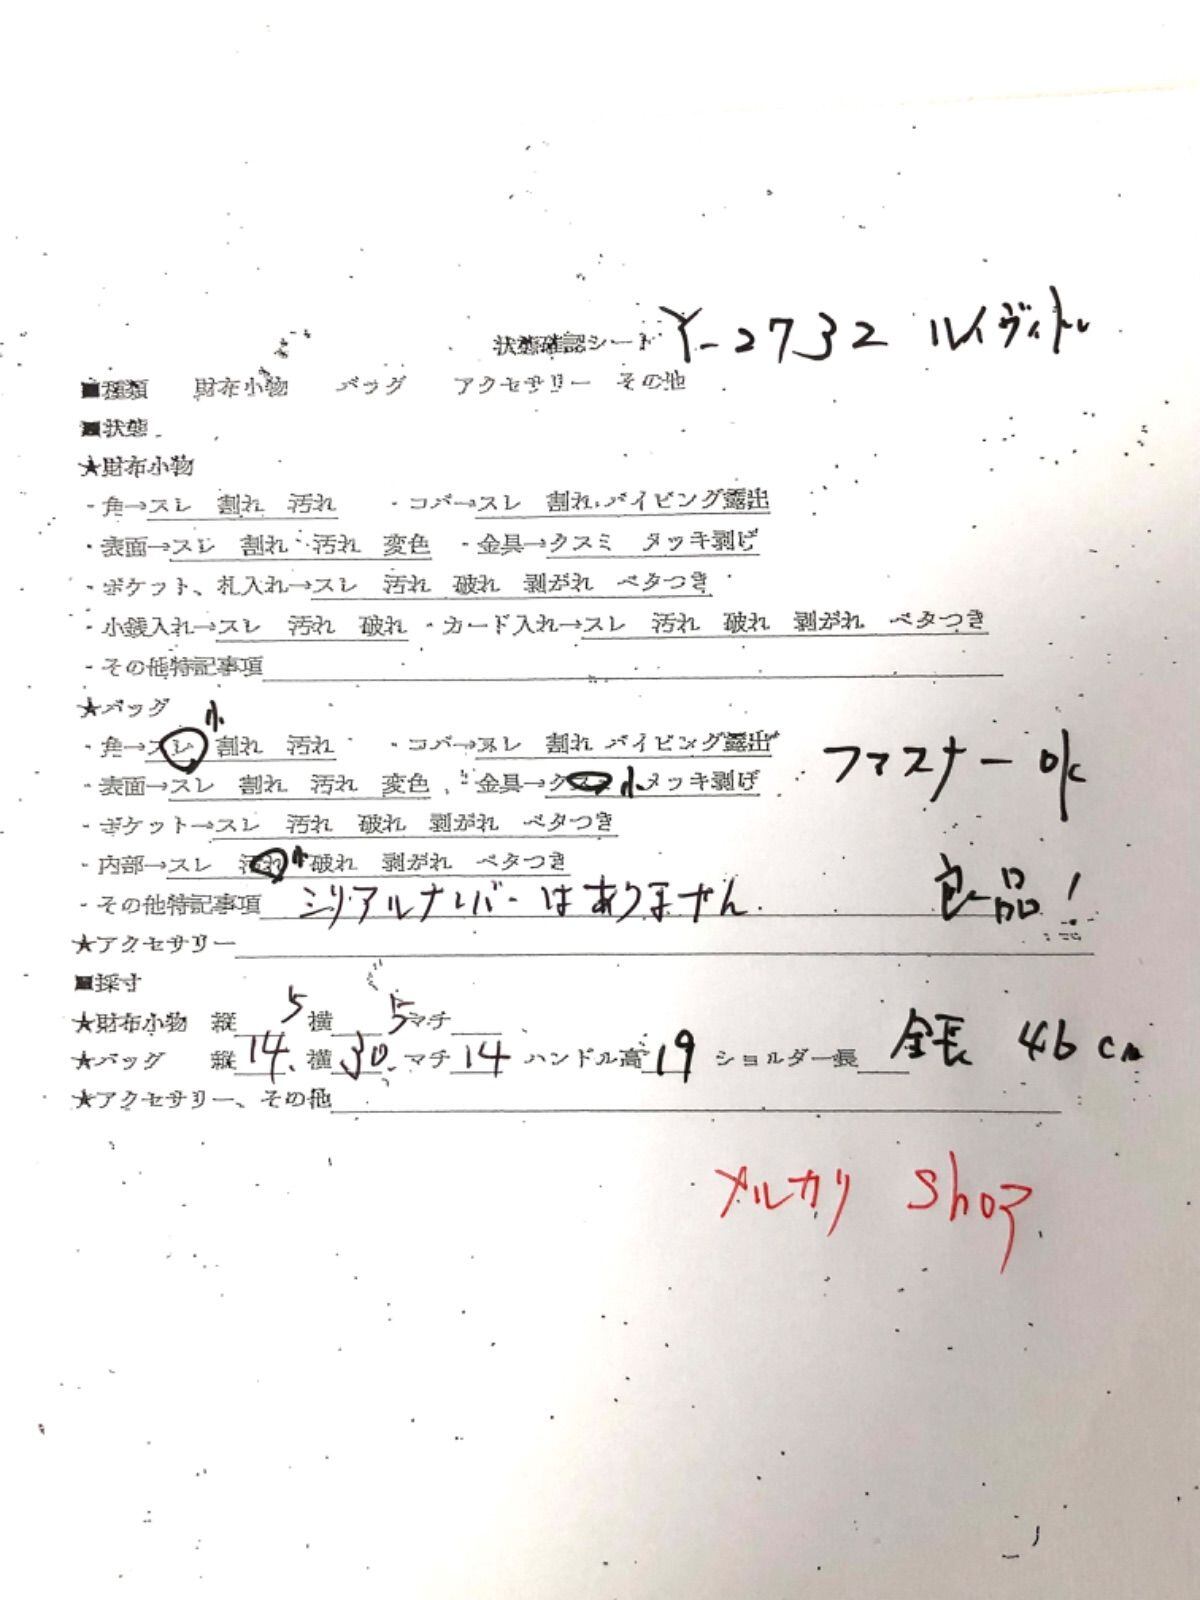 状態確認シート Y-2732 ルイヴィトン
■種類 財布小物 バッグ アクセサリー その他
■状態
★財布小物
・角→スレ 割れ 汚れ ・コバ→スレ 割れ パイピング露出
・表面→スレ 割れ 汚れ 変色 ・金具→クスミ メッキ剥げ
・ポケット、札入れ→スレ 汚れ 破れ 剥がれ ベタつき
・小銭入れ→スレ 汚れ 破れ ・カード入れ→スレ 汚れ 破れ 剥がれ ベタつき
・その他特記事項
★バッグ
・角→スレ小 割れ 汚れ ・コバ→スレ 割れ パイピング露出
ファスナー ok
・表面→スレ 割れ 汚れ 変色 ・金具→クスミ小 メッキ剥げ
・ポケット→スレ 汚れ 破れ 剥がれ ベタつき
・内部→スレ 汚れ小 破れ 剥がれ ベタつき
・その他特記事項 シリアルナンバーはありません 良品!
★アクセサリー
■採寸
★財布小物 縦 横 マチ
5 5
★バッグ 縦14. 横30. マチ14 ハンドル高19 ショルダー長 全長 46cm
★アクセサリー、その他
メルカリ shop